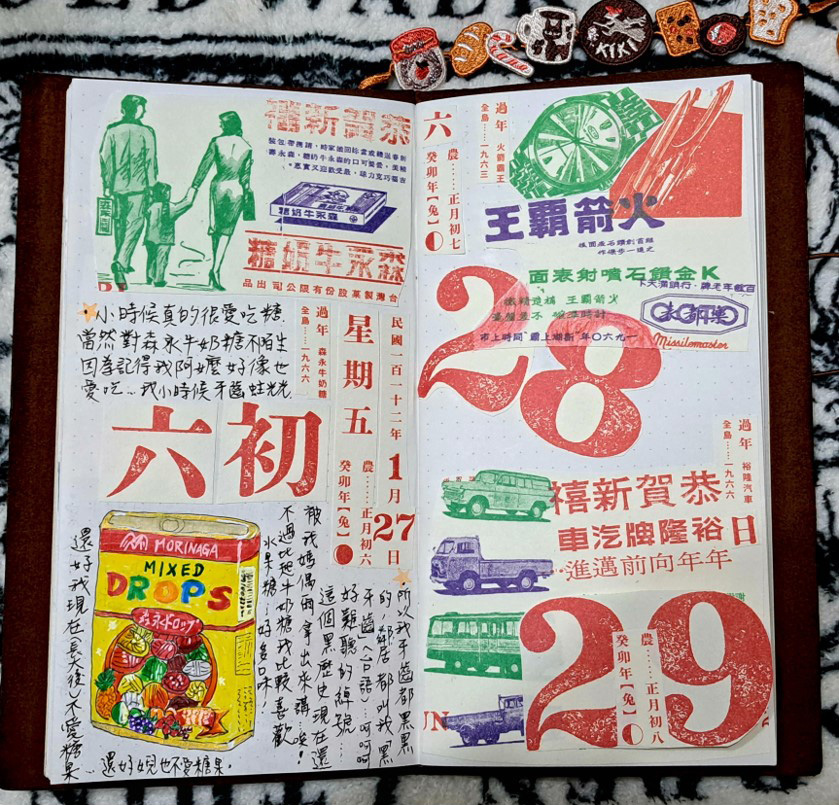 恭賀新禧
森永牛奶糖
森永牛奶糖
台灣製菓股份有限公司出品
小時候真的很愛吃糖
當然對森永牛奶糖不陌生
因為記得我阿嬤好像也
愛吃…我小時候牙齒蛀光光
過年 森永牛奶糖
全島……一九六六
星期五
民國一百一十二年
1月27日
農……正月初六
癸卯年【兔】
初六
MORINAGA
MIXED
DROPS
森永ドロップ
所以我牙齒都黑黑
的,鄰居都叫我"黑
牙齒"(台語),呵呵呵
好難聽的綽號…
這個黑歷史現在還
被我媽偶爾拿出來講唉!
不過比起牛奶糖我比較喜歡
水果糖…好多口味!
還好我現在(長大後)不愛糖果…
還好婗也不愛糖果。
KIKI
六
農……正月初七
癸卯年【兔】
過年 火箭霸王
全島……一九六三
火箭霸王
K金鑽石噴射表面
百餘年老牌・行銷滿天下
火箭霸王
Missilemaster
28
過年 裕隆汽車
全島……一九六六
日
恭賀新禧
裕隆牌汽車
年年向前邁進…
29
農……正月初八
癸卯年【兔】